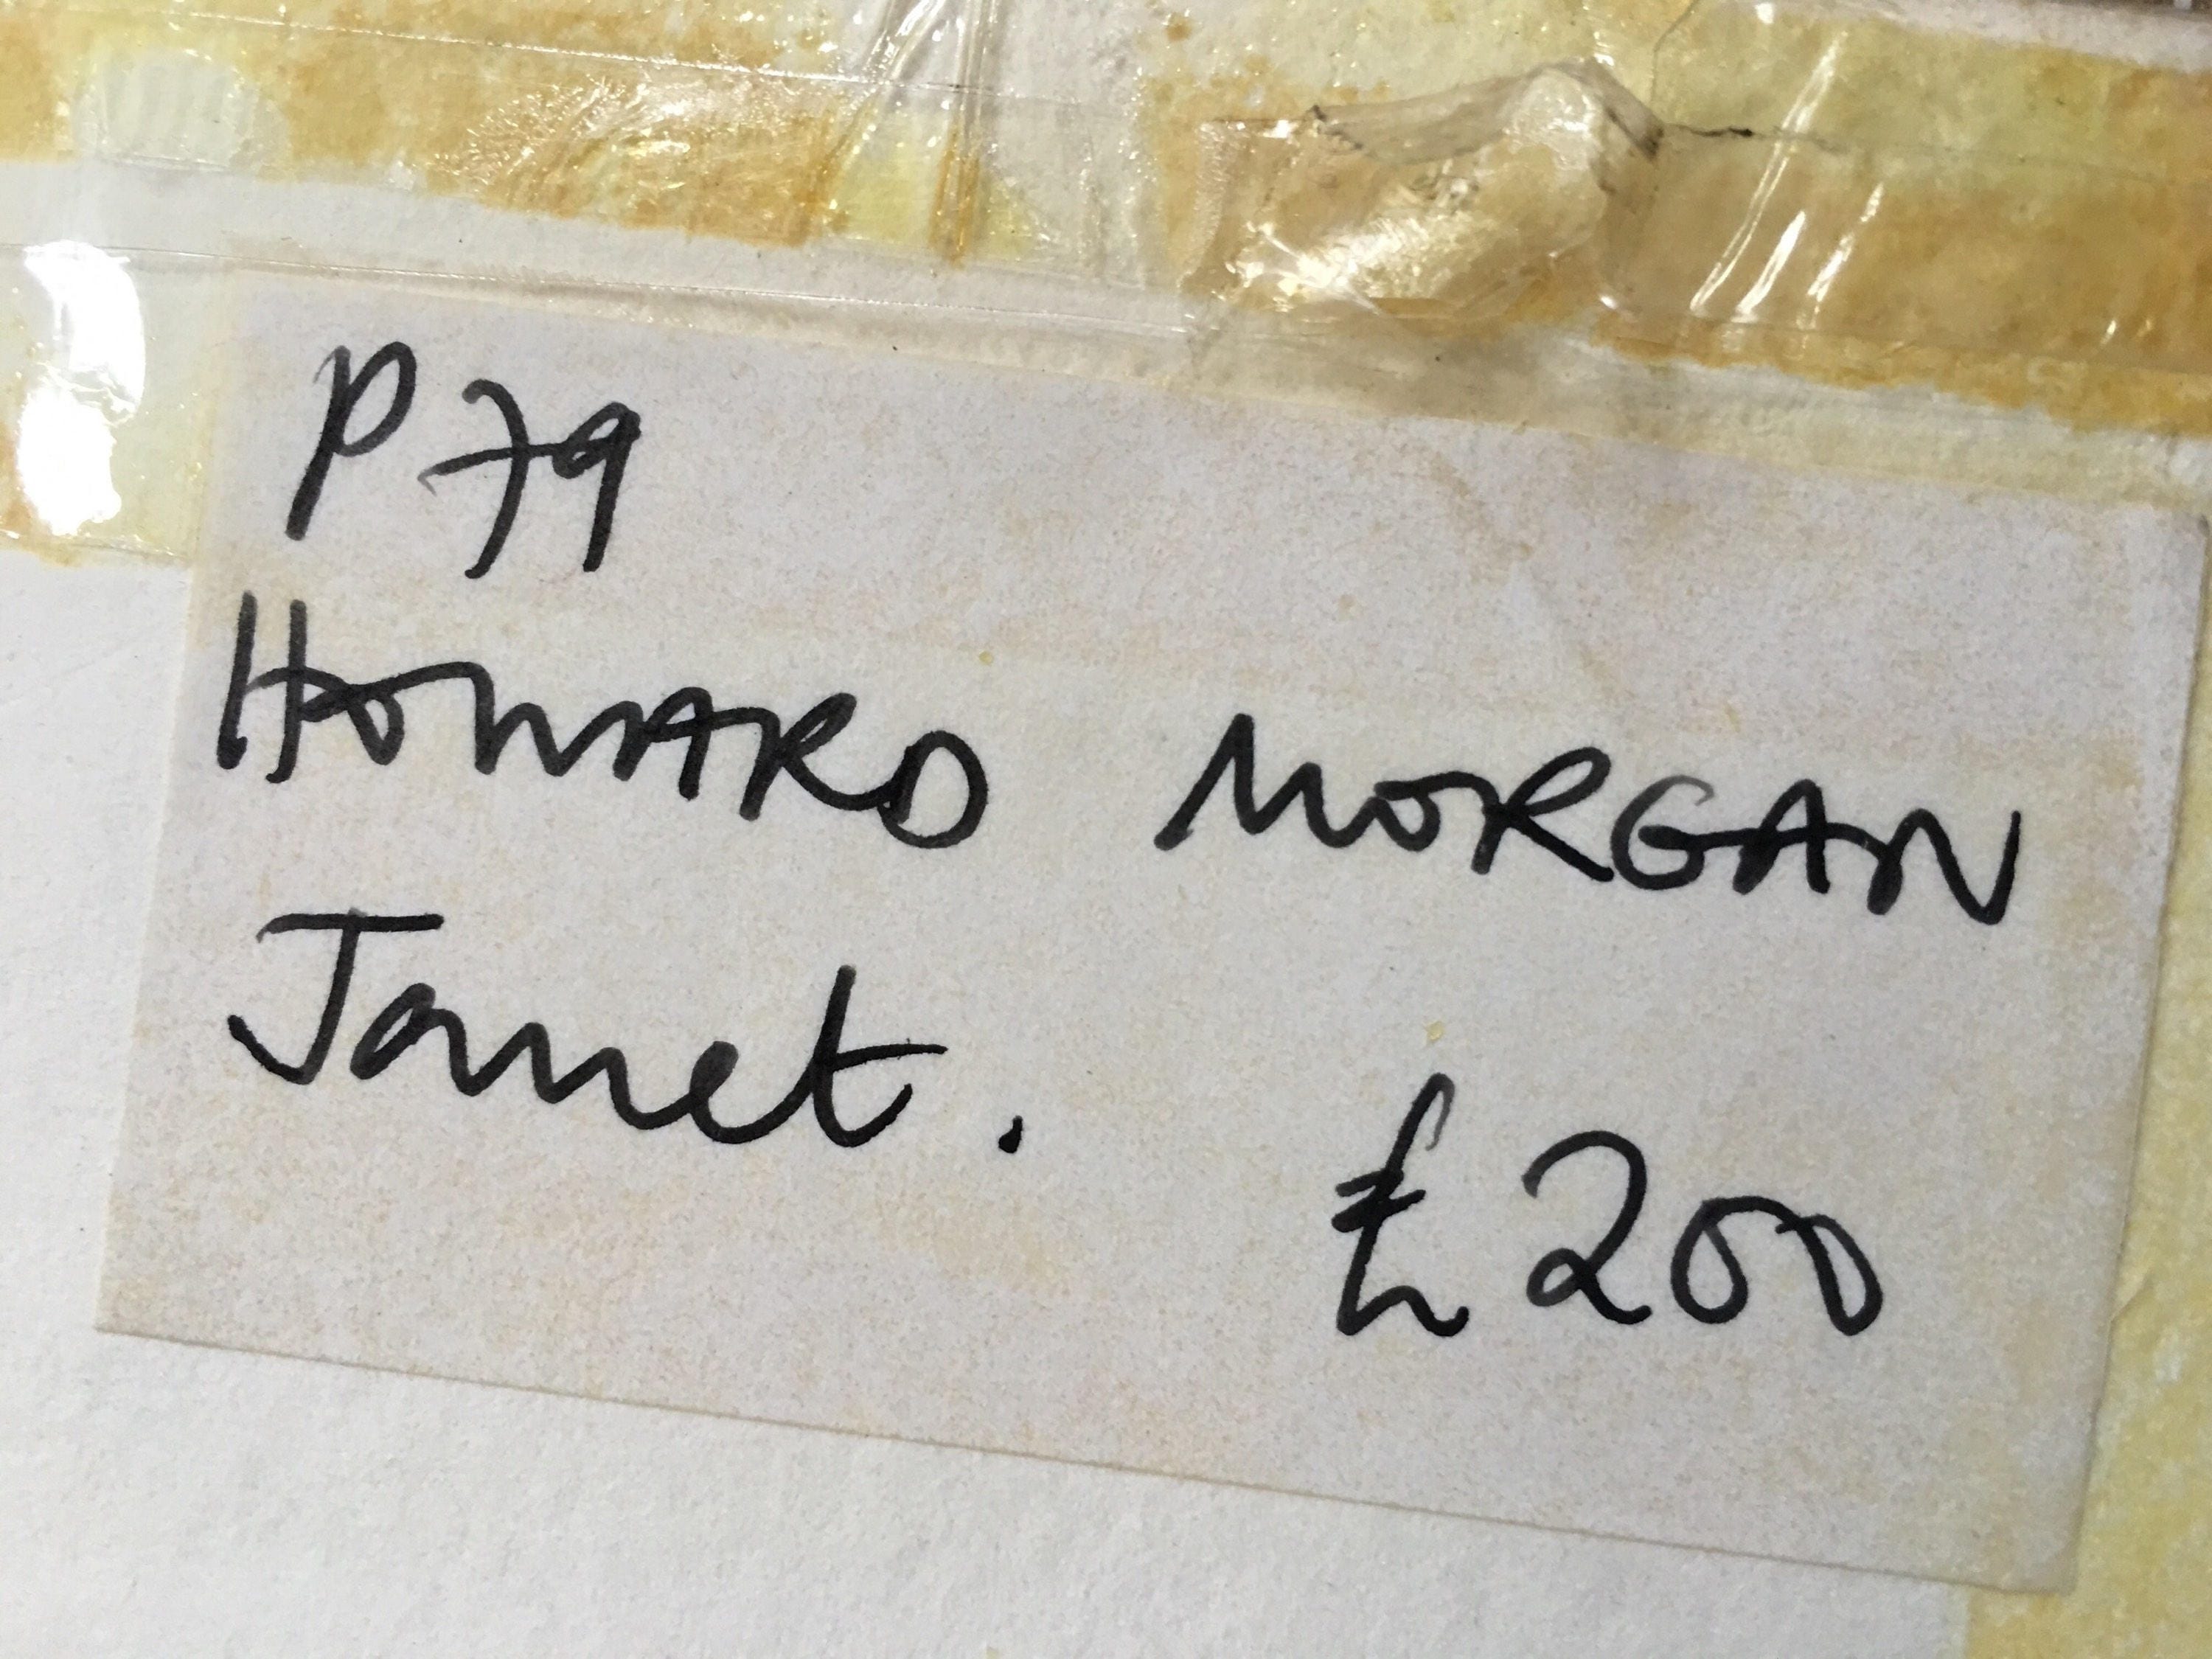 P79
HOWARD MORGAN
Janet.
£200